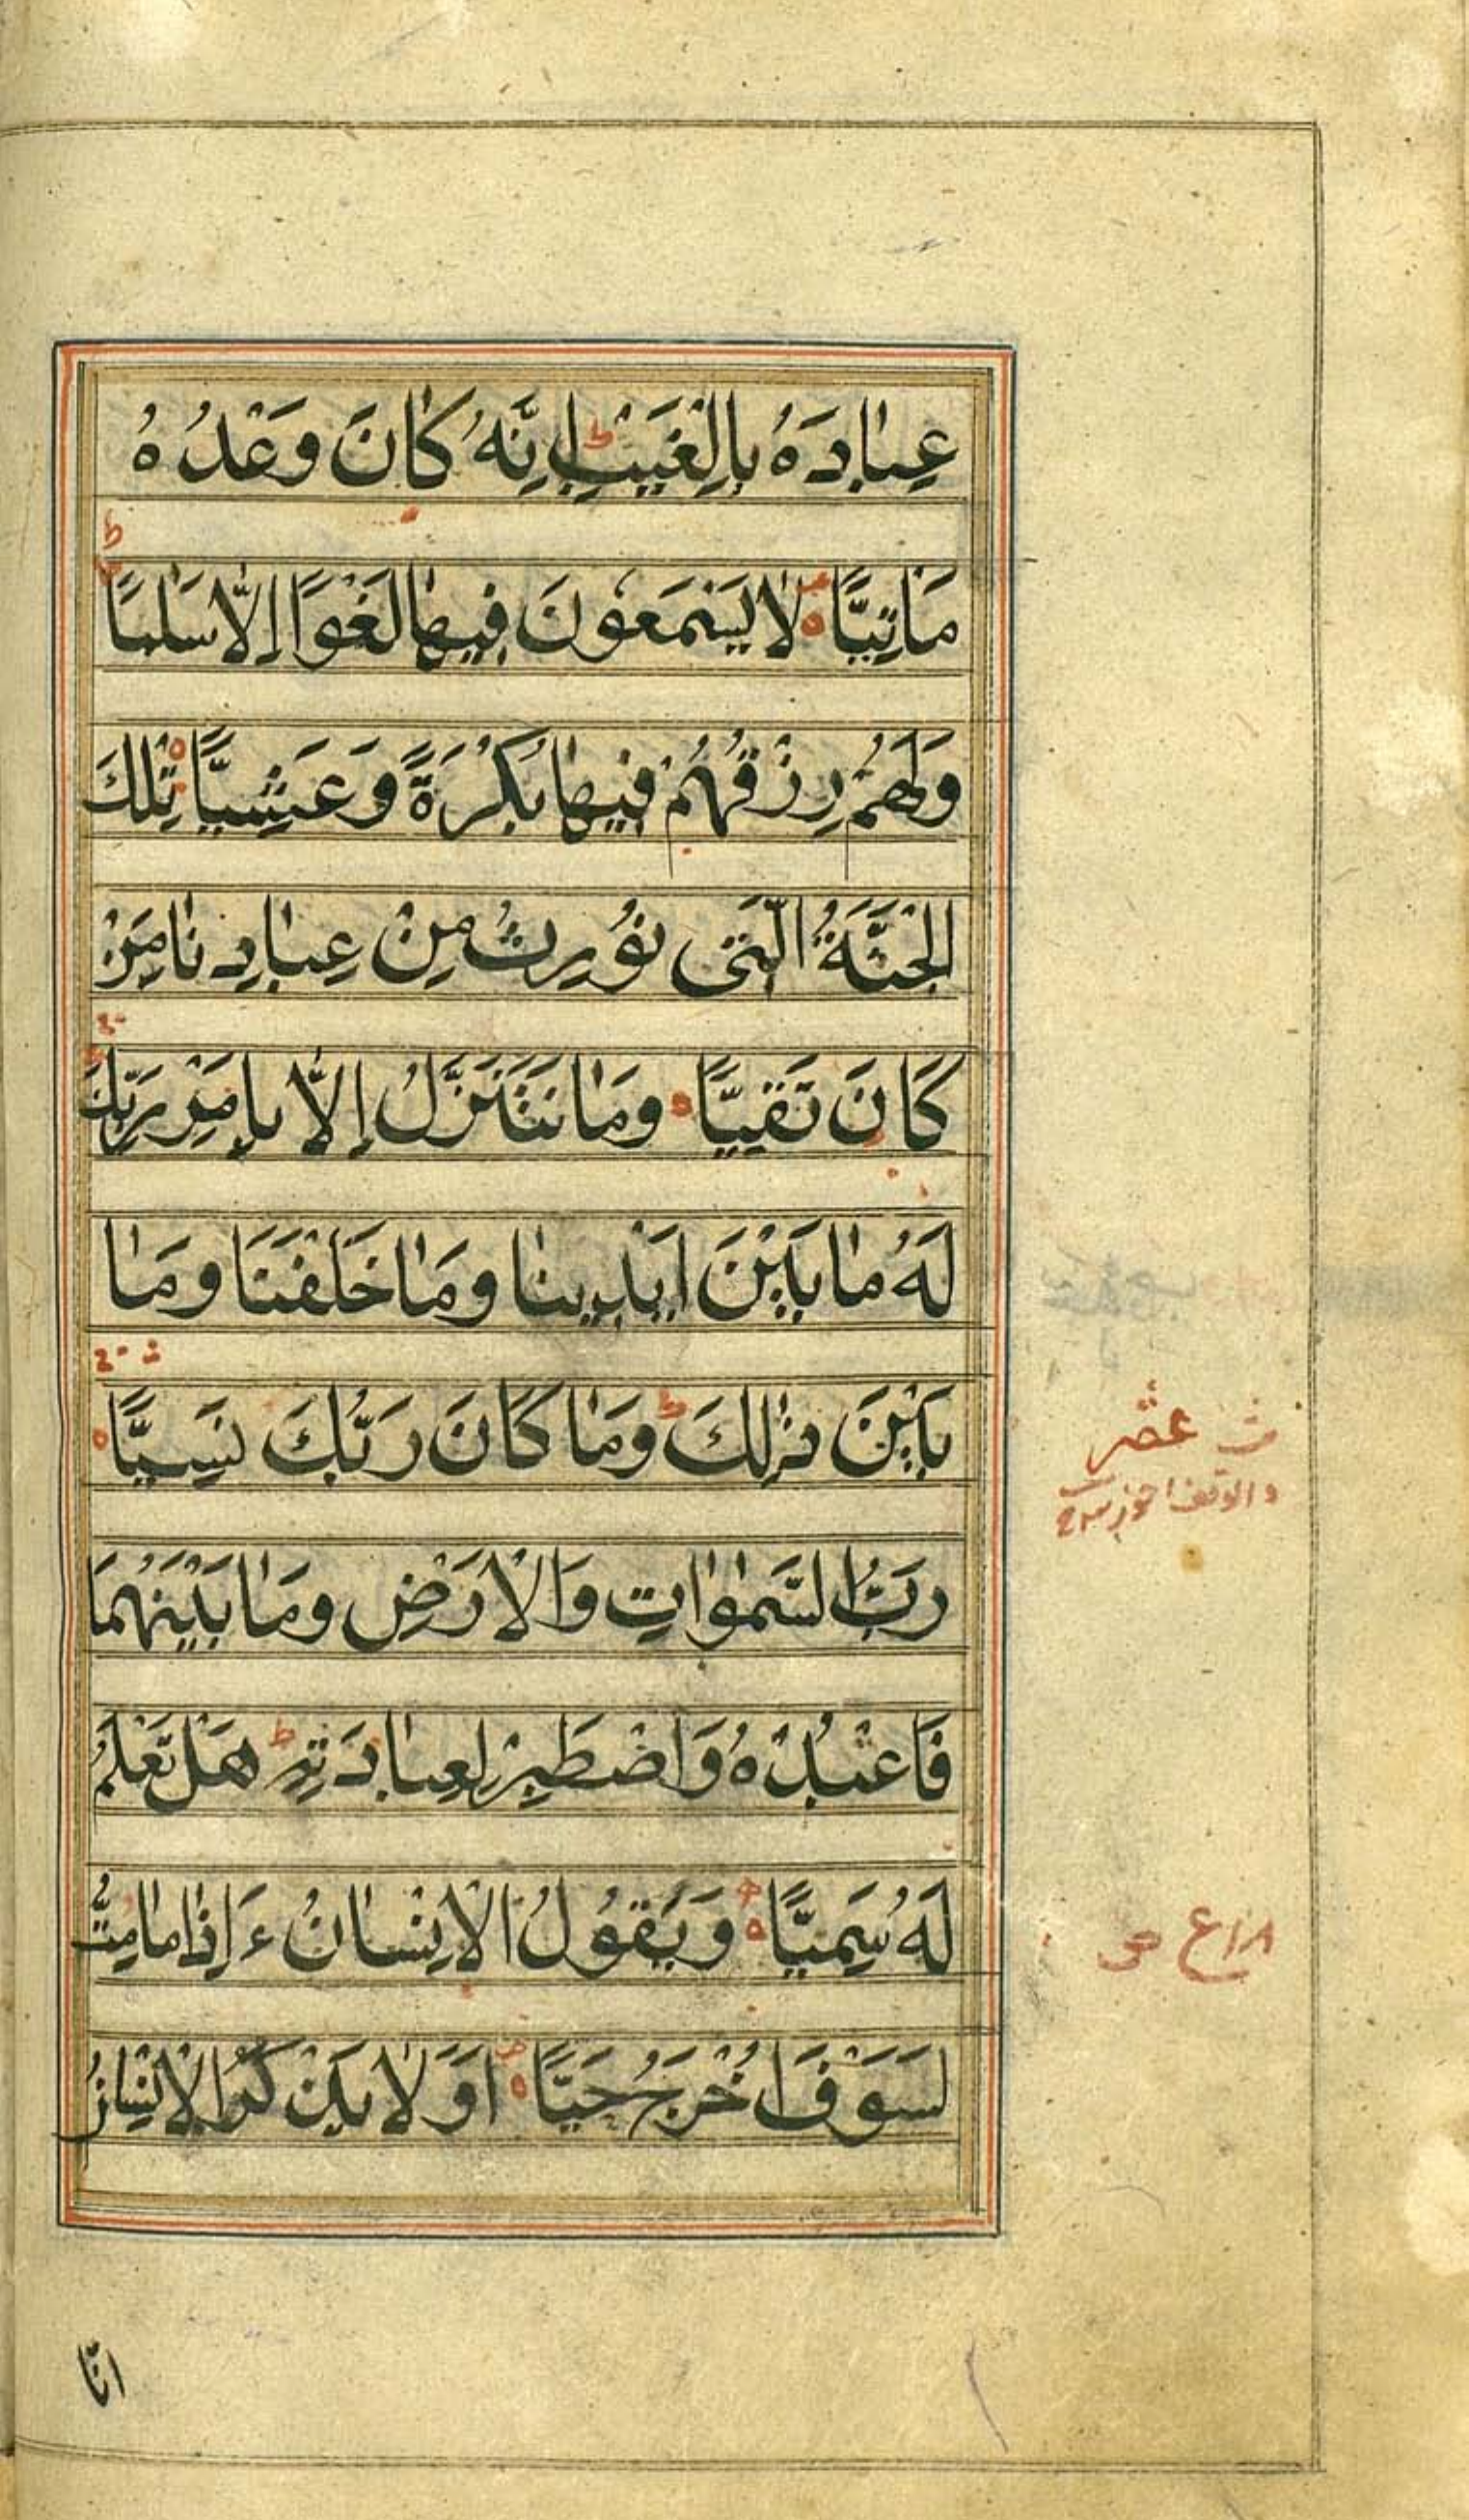 عِبَادَهُ بِالْغَيْبِ ط اِنَّهُ كَانَ وَعْدُهُ
ط
مَاْتِيًّا ه لَا يَسْمَعُوْنَ فِيهَا لَغْوًا اِلَّا سَلَامًا
وَلَهُمْ رِزْقُهُمْ فِيهَا بُكْرَةً وَعَشِيًّا ه تِلْكَ
الْجَنَّةُ الَّتِى نُوْرِثُ مِنْ عِبَادِنَا مَنْ
كَانَ تَقِيًّا ه وَمَا نَتَنَزَّلُ اِلَّا بِاَمْرِ رَبِّكَ
لَهُ مَا بَيْنَ اَيْدِينَا وَمَا خَلْفَنَا وَمَا
بَيْنَ ذٰلِكَ ط وَمَا كَانَ رَبُّكَ نَسِيًّا ه
رَبُّ السَّمٰوَاتِ وَالْاَرْضِ وَمَا بَيْنَهُمَا
فَاعْبُدْهُ وَاصْطَبِرْ لِعِبَادَتِهِ ط هَلْ تَعْلَمُ
لَهُ سَمِيًّا ه وَيَقُوْلُ الْاِنْسَانُ ءَاِذَا مَا مِتُّ
لَسَوْفَ اُخْرَجُ حَيًّا ه اَوَلَا يَذْكُرُ الْاِنْسَانُ
انَّا